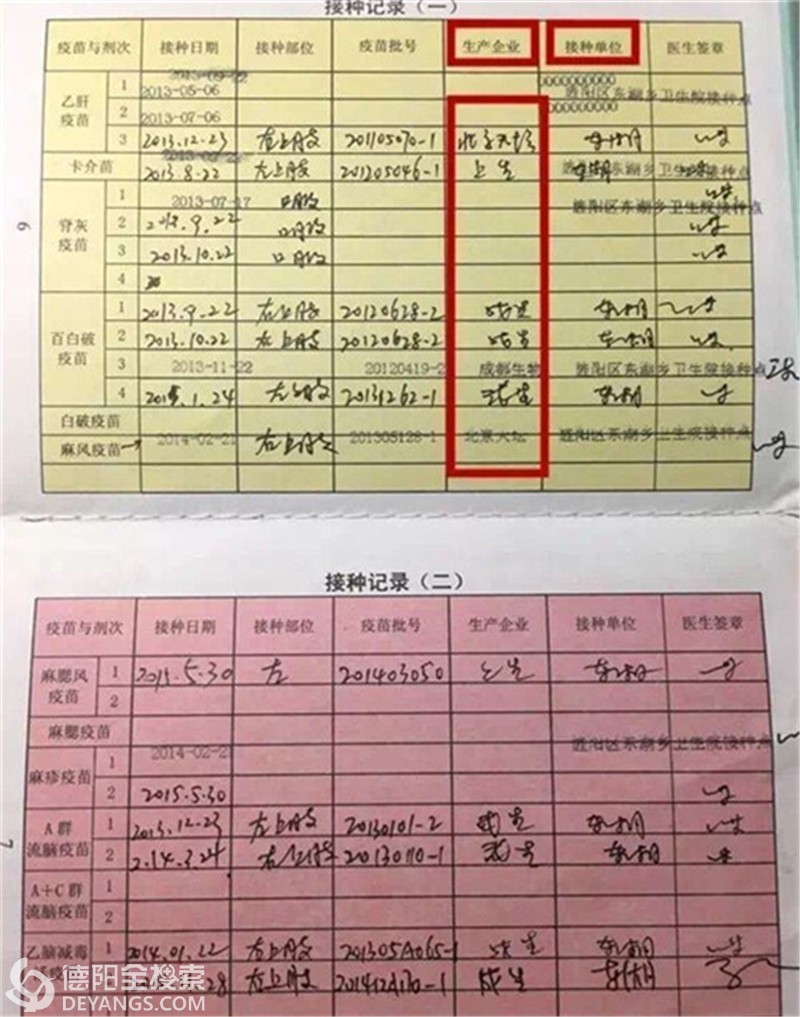 接种记录（一）
疫苗与剂次 接种日期 接种部位 疫苗批号 生产企业 接种单位 医生签章
乙肝疫苗 1 2013-05-06 旌阳区东湖乡卫生院接种点
2 2013-07-06
3 2013.12.23 左上肢 201105070-1 北京天坛 东湖
卡介苗 2013.8.22 左上肢 201205046-1 上生 东湖
脊灰疫苗 1 2013-07-17 口服 旌阳区东湖乡卫生院接种点
2 2013.9.22 口服
3 2013.10.22 口服
4
百白破疫苗 1 2013.9.22 右上肢 20120628-2 成生 东湖
2 2013.10.22 左上肢 20120628-2 成生 东湖
3 2013-11-22 20120419-2 成都生物 旌阳区东湖乡卫生院接种点
4 2015.1.24 20131262-1 东湖
白破疫苗
麻风疫苗 2014-02-21 右上肢 201305128-1 北京天坛 旌阳区东湖乡卫生院接种点
6
接种记录（二）
疫苗与剂次 接种日期 接种部位 疫苗批号 生产企业 接种单位 医生签章
麻腮风疫苗 1 2015.5.30 左 201403050 上生 东湖
2
麻腮疫苗 旌阳区东湖乡卫生院接种点
麻疹疫苗 1 2014-02-21
2 2015.5.30
A群流脑疫苗 1 2013.12.23 左上肢 20130101-2 东湖
2 2.14.3.24 右上肢 20130110-1 东湖
A+C群流脑疫苗 1
2
乙脑减毒 1 2014.01.22 右上肢 201305A065-1 成生 东湖
28 右上肢 成生 东湖
7
德阳全搜索
DEYANGS.COM